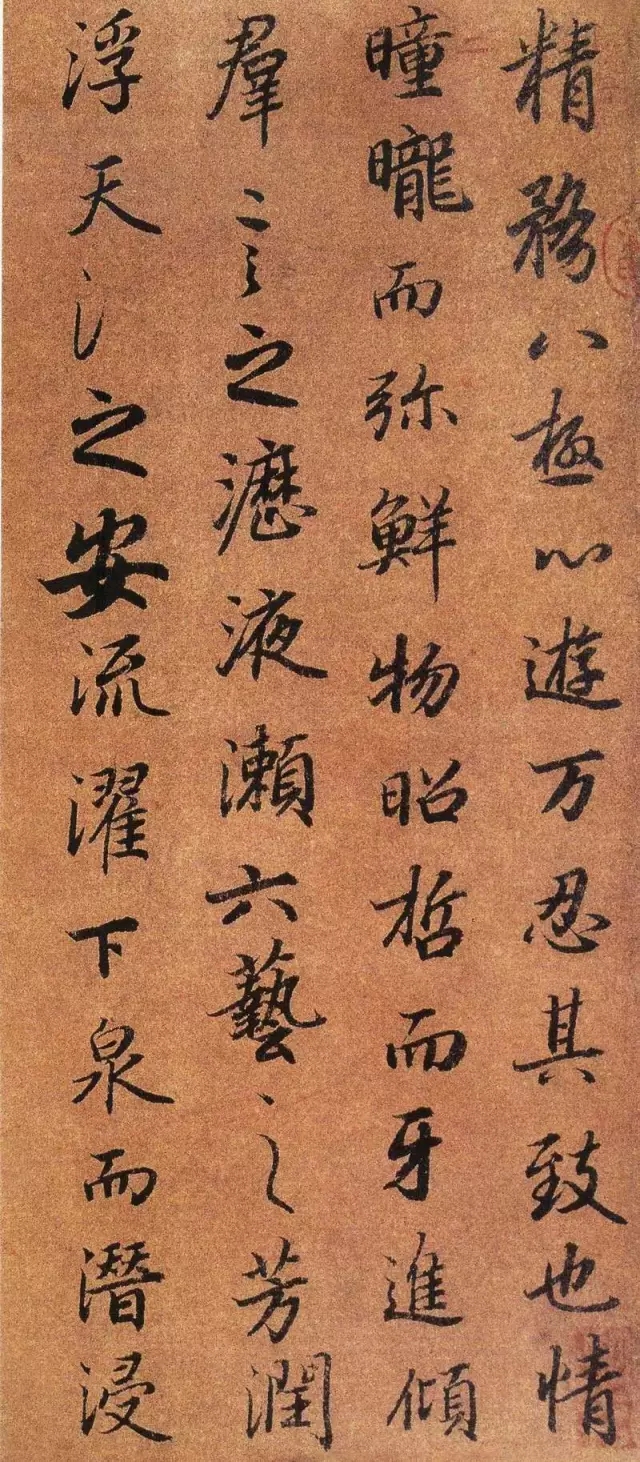 精務八極心遊万忍其致也情
曈曨而弥鮮物昭晢而牙進傾
羣言之瀝液瀬六藝之芳潤
浮天之安流濯下泉而潛浸